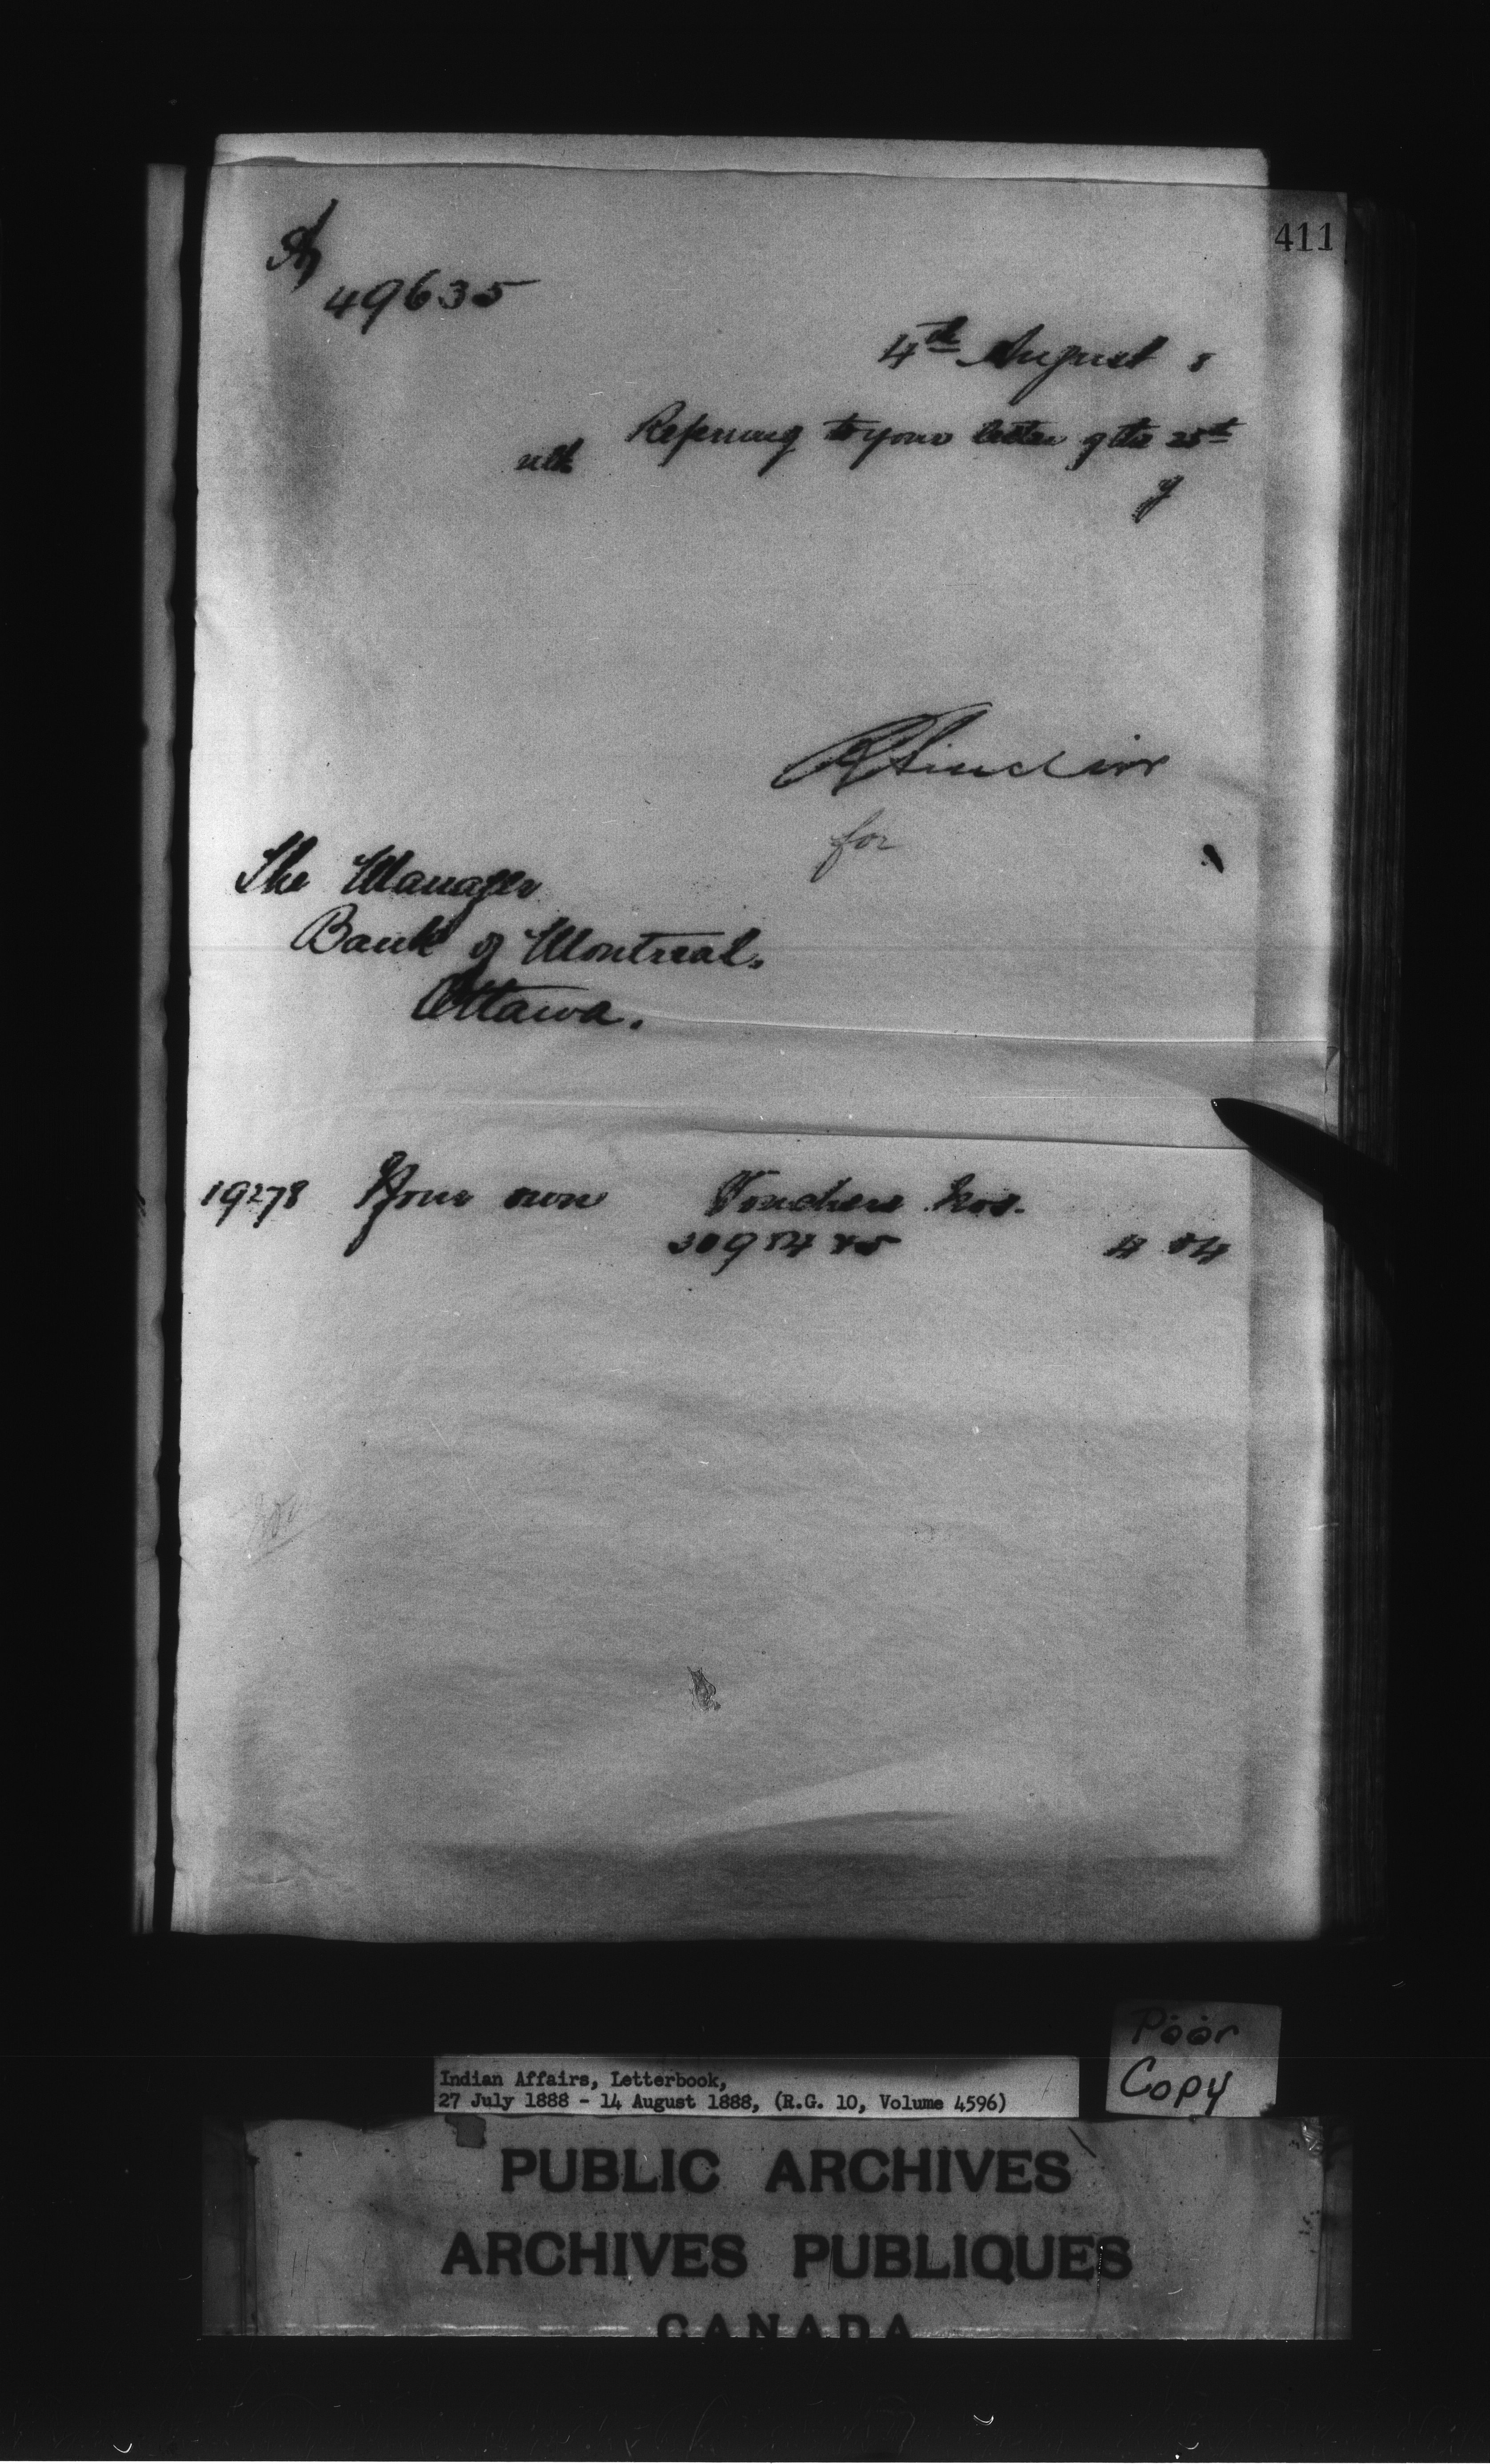 411
49635
4th August 8
Referring to your letter of the 25th
ult
of
R Sinclair
for
The Manager
Bank of Montreal.
Ottawa.
19278 Your own Vouchers Nos.
4 84
Poor
Copy
Indian Affairs, Letterbook,
27 July 1888 - 14 August 1888, (R.G. 10, Volume 4596)
PUBLIC ARCHIVES
ARCHIVES PUBLIQUES
CANADA